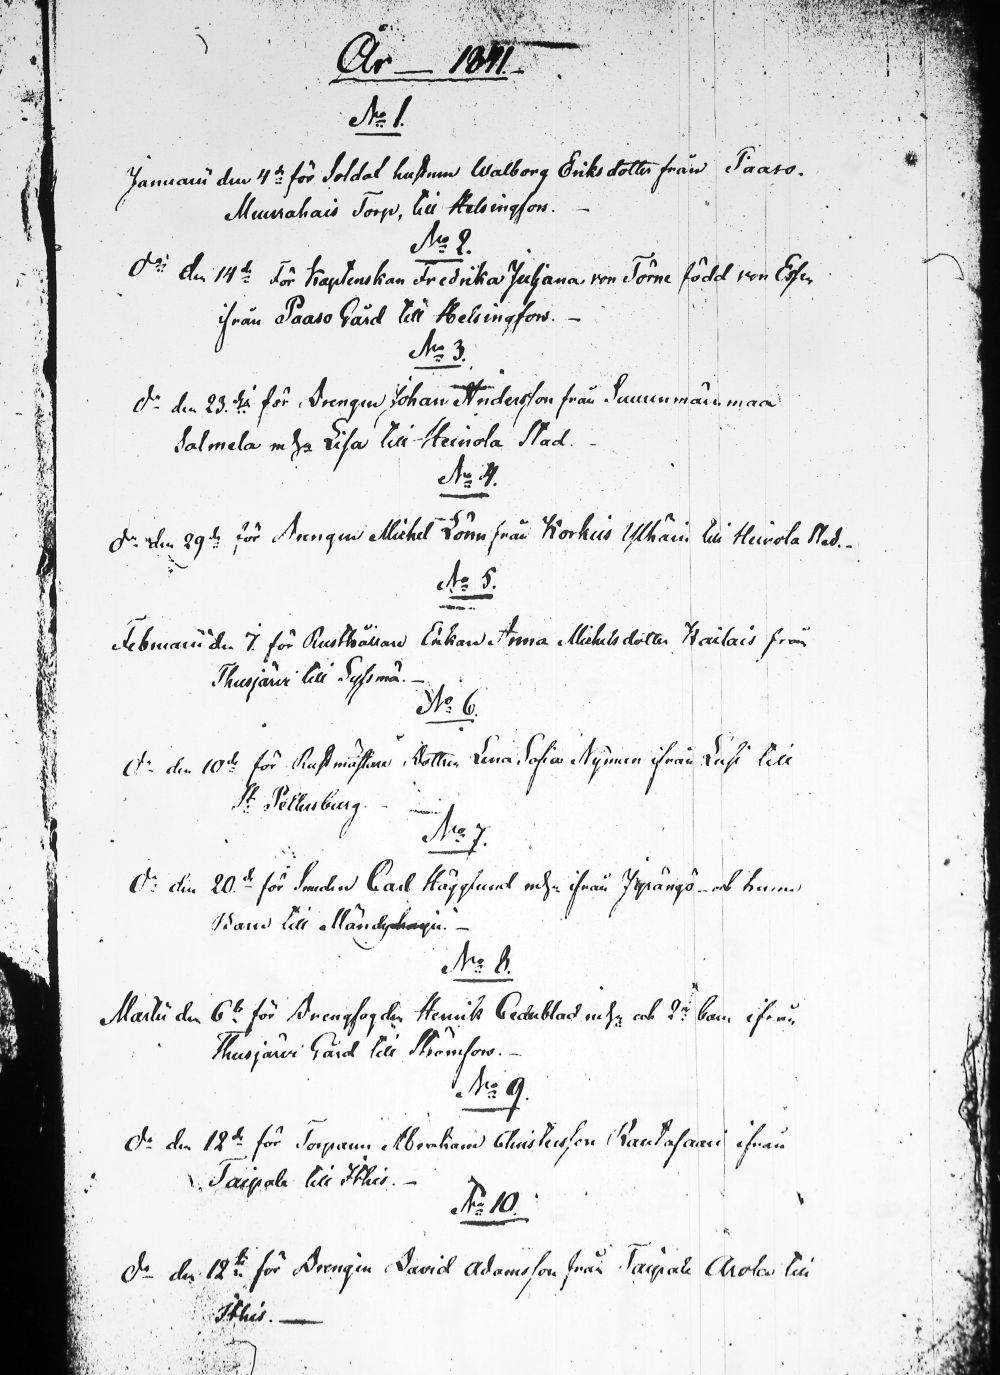 År — 1841.
No 1.
Januarii den 4de för Soldat hustrun Walborg Eriksdotter från Paaso.
Muurahais Torp, till Helsingfors. —
No 2.
Do den 14de För Kaptenskan Fredrika Juljana von Törne född von Essen
ifrån Paaso Gård till Helsingfors. —
No 3.
Do den 23. för Drengen Johan Andersson från
Salmela Lisa till Heinola Stad. —
No 4.
Do den 29de för Drengen Michel Lönn från Korkis till Heinola Stad. —
No 5.
Februarii den 7. för Enkan Anna Michelsdotter från
Thusjärvi till Syssmä. —
No 6.
Do den 10de för Rustmästare Dottren Lena Sofia Nyman ifrån Lusi till
St Petersburg. —
No 7.
Do den 20.de för Smeden Carl Hägglund ifrån och
Barn till
No 8.
Martii den 6te för Drengfogden Henrik Cederblad och 2ne barn ifrån
Thusjärvi Gård till Strömfors. —
No 9.
Do den 12de för Torparen Abraham Christersson Rantasaari ifrån
Taipale till Ithis. —
No 10.
Do den 12te för Drengen David Adamsson från Taipale Arola till
Ithis. —